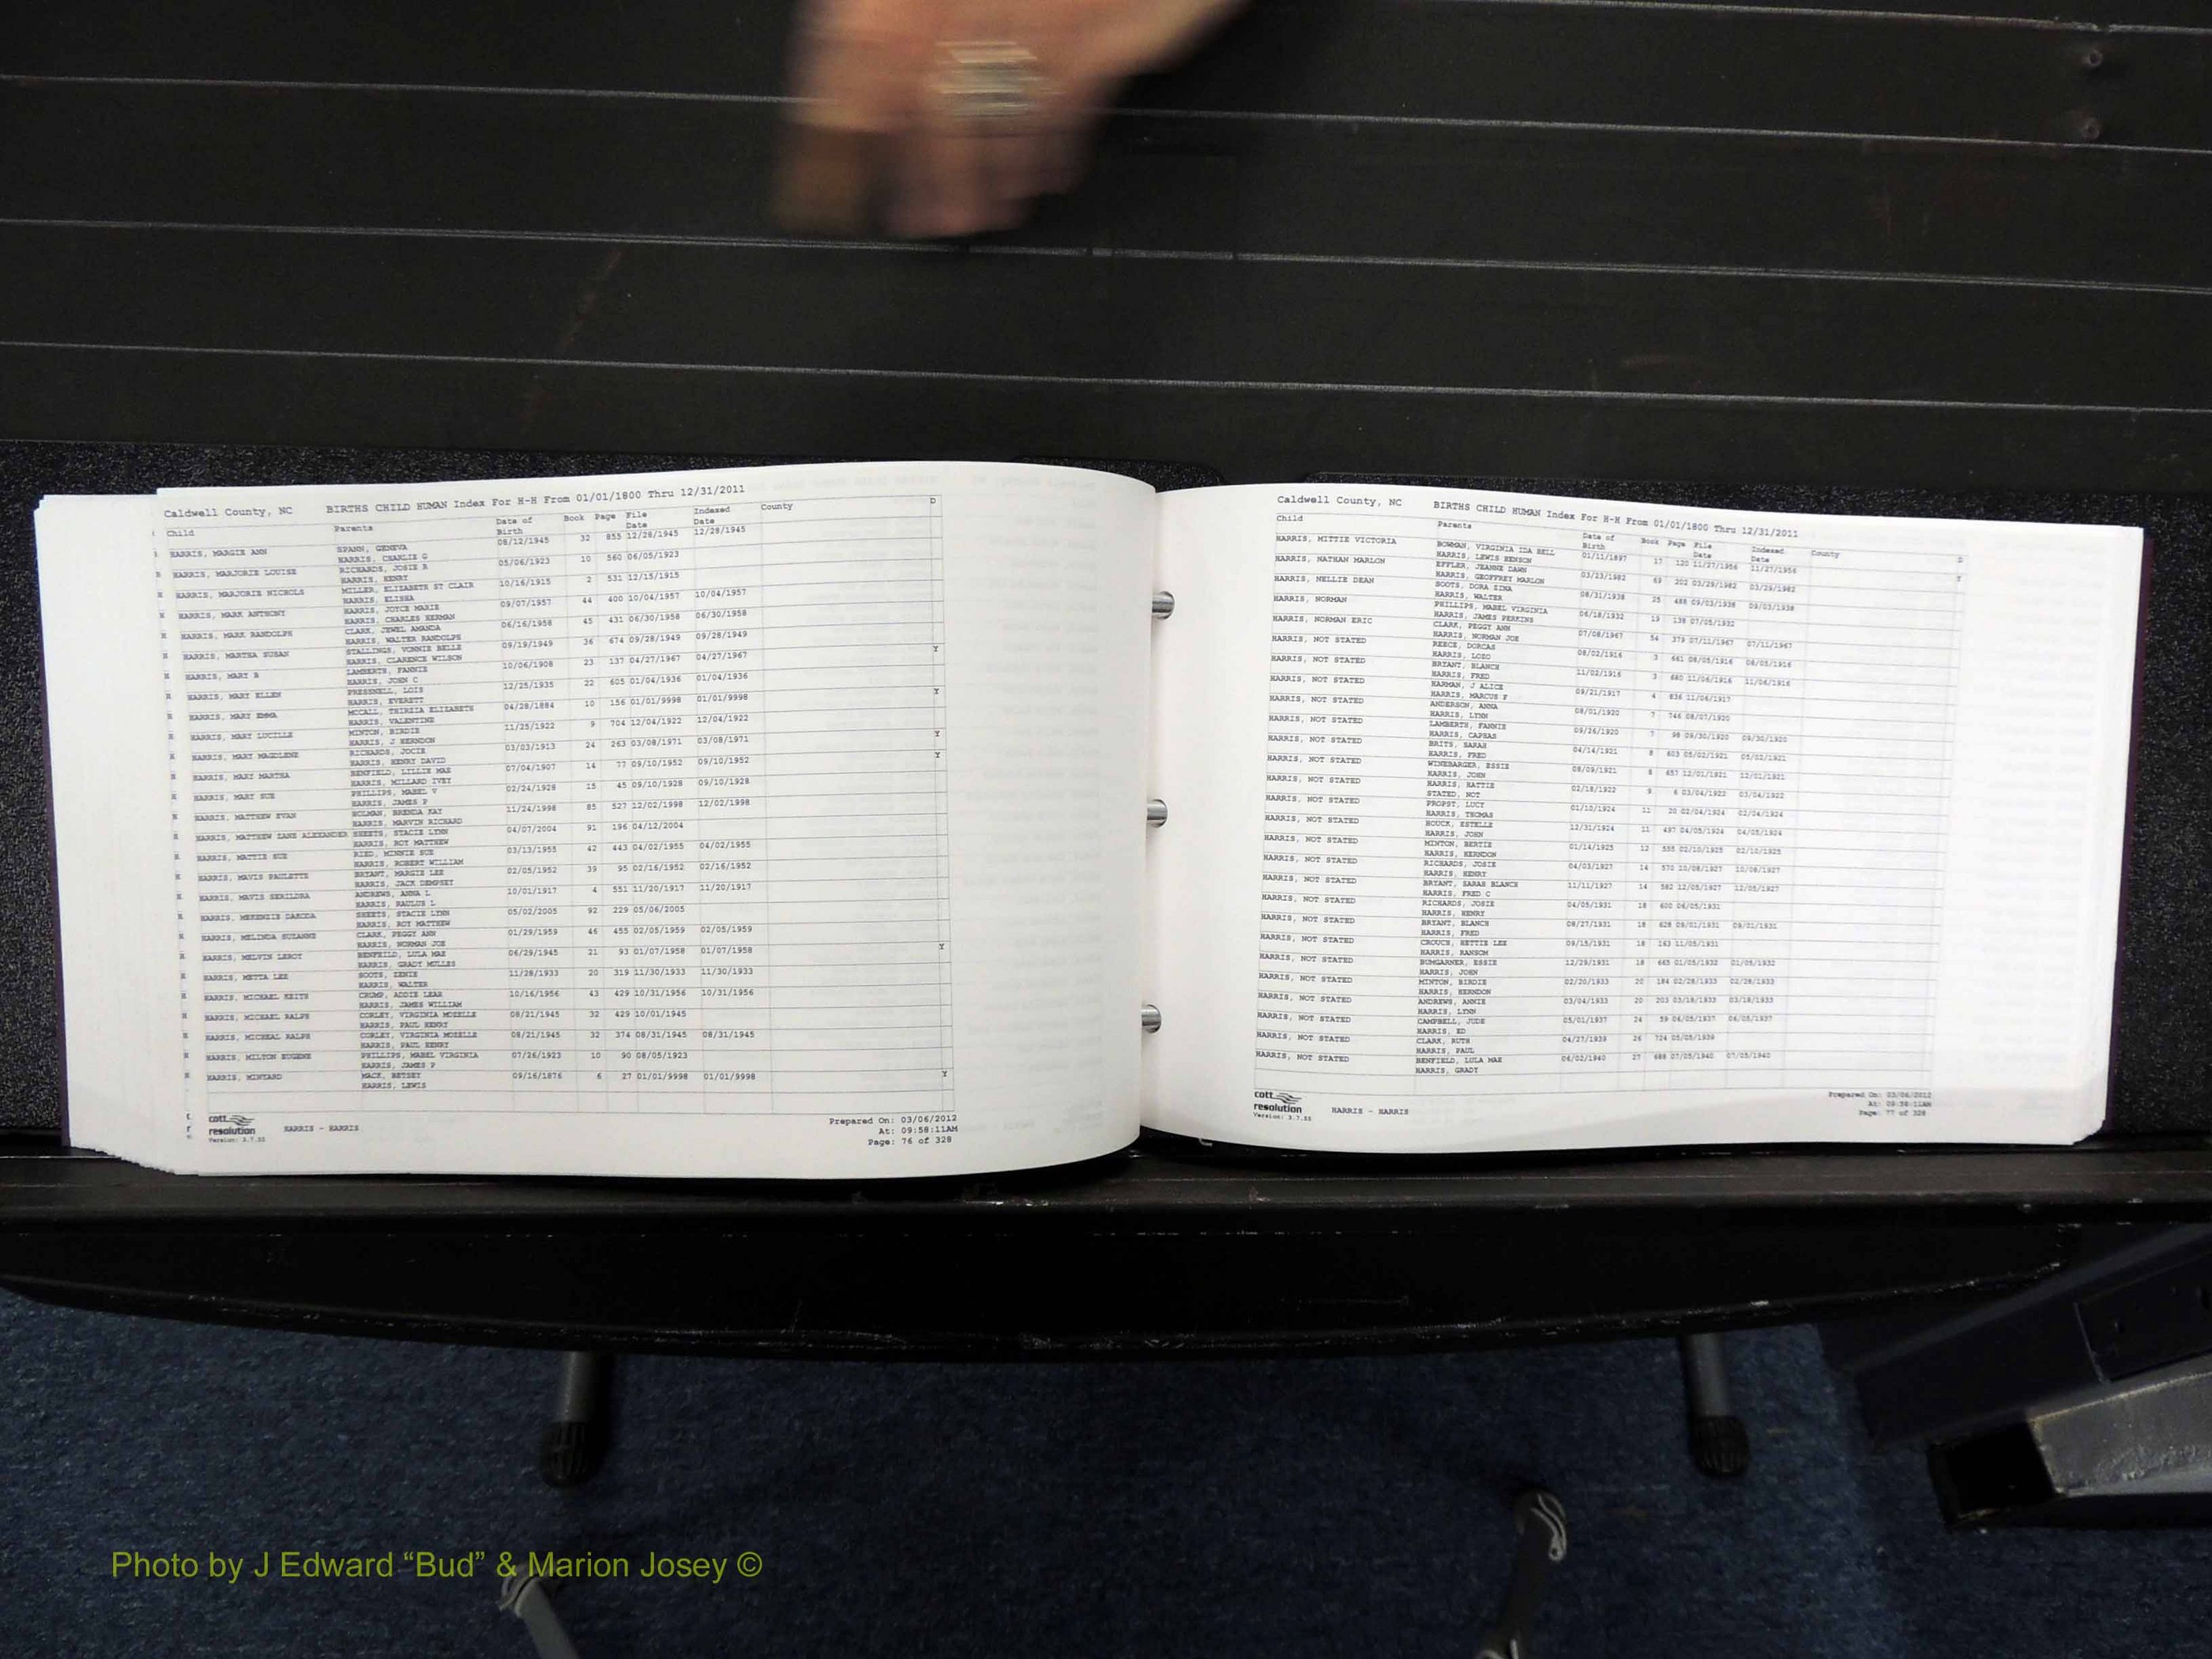 Caldwell County, NC BIRTHS CHILD HUMAN Index For H-H From 01/01/1800 Thru 12/31/2011
Child Parents Date of Birth Book Page File Date Indexed Date County D
HARRIS, MARGIE ANN SPANN, GENEVA 08/12/1945 32 855 12/28/1945 12/28/1945
HARRIS, CHARLIE G
HARRIS, MARJORIE LOUISE RICHARDS, JOSIE R 05/06/1923 10 560 06/05/1923
HARRIS, HENRY
HARRIS, MARJORIE NICHOLS MILLER, ELIZABETH ST CLAIR 10/16/1915 2 531 12/15/1915
HARRIS, ELISHA
HARRIS, MARK ANTHONY HARRIS, JOYCE MARIE 09/07/1957 44 400 10/04/1957 10/04/1957
HARRIS, CHARLES HERMAN
HARRIS, MARK RANDOLPH CLARK, JEWEL AMANDA 06/16/1958 45 431 06/30/1958 06/30/1958
HARRIS, WALTER RANDOLPH
HARRIS, MARTHA SUSAN STALLINGS, VONNIE BELLE 09/19/1949 36 674 09/28/1949 09/28/1949
HARRIS, CLARENCE WILSON
HARRIS, MARY B LAMBERTH, FANNIE 10/06/1908 23 137 04/27/1967 04/27/1967 Y
HARRIS, JOHN C
HARRIS, MARY ELLEN PRESSNELL, LOIS 12/25/1935 22 605 01/04/1936 01/04/1936
HARRIS, EVERETT
HARRIS, MARY EMMA MCCALL, THIRZIA ELIZABETH 04/28/1884 10 156 01/01/9998 01/01/9998 Y
HARRIS, VALENTINE
HARRIS, MARY LUCILLE MINTON, BIRDIE 11/25/1922 9 704 12/04/1922 12/04/1922
HARRIS, J HERNDON
HARRIS, MARY MAGDLENE RICHARDS, JOCIE 03/03/1913 24 263 03/08/1971 03/08/1971 Y
HARRIS, HENRY DAVID
HARRIS, MARY MARTHA BENFIELD, LILLIE MAE 07/04/1907 14 77 09/10/1952 09/10/1952 Y
HARRIS, MILLARD IVEY
HARRIS, MARY SUE PHILLIPS, MABEL V 02/24/1928 15 45 09/10/1928 09/10/1928
HARRIS, JAMES P
HARRIS, MATTHEW EVAN HOLMAN, BRENDA KAY 11/24/1998 85 527 12/02/1998 12/02/1998
HARRIS, MARVIN RICHARD
HARRIS, MATTHEW ZANE ALEXANDER SHEETS, STACIE LYNN 04/07/2004 91 196 04/12/2004
HARRIS, ROY MATTHEW
HARRIS, MATTIE SUE RIED, MINNIE SUE 03/13/1955 42 443 04/02/1955 04/02/1955
HARRIS, ROBERT WILLIAM
HARRIS, MAVIS PAULETTE BRYANT, MARGIE LEE 02/05/1952 39 95 02/16/1952 02/16/1952
HARRIS, JACK DEMPSEY
HARRIS, MAVIS SERILDRA ANDREWS, ANNA L 10/01/1917 4 551 11/20/1917 11/20/1917
HARRIS, RAULUS L
HARRIS, MEKENZIE DAKODA SHEETS, STACIE LYNN 05/02/2005 92 229 05/06/2005
HARRIS, ROY MATTHEW
HARRIS, MELINDA SUZANNE CLARK, PEGGY ANN 01/29/1959 46 455 02/05/1959 02/05/1959
HARRIS, NORMAN JOE
HARRIS, MELVIN LEROY BENFEILD, LULA MAE 06/29/1945 21 93 01/07/1958 01/07/1958 Y
HARRIS, GRADY MULLES
HARRIS, METTA LEE SOOTS, ZENIE 11/28/1933 20 319 11/30/1933 11/30/1933
HARRIS, WALTER
HARRIS, MICHAEL KEITH CRUMP, ADDIE LEAR 10/16/1956 43 429 10/31/1956 10/31/1956
HARRIS, JAMES WILLIAM
HARRIS, MICHAEL RALPH CORLEY, VIRGINIA MOZELLE 08/21/1945 32 429 10/01/1945
HARRIS, PAUL HENRY
HARRIS, MICHEAL RALPH CORLEY, VIRGINIA MOZELLE 08/21/1945 32 374 08/31/1945 08/31/1945
HARRIS, PAUL HENRY
HARRIS, MILTON EUGENE PHILLIPS, MABEL VIRGINIA 07/26/1923 10 90 08/05/1923
HARRIS, JAMES P
HARRIS, MINTARD MACK, BETSEY 09/16/1876 6 27 01/01/9998 01/01/9998 Y
HARRIS, LEWIS
cott resolution Version: 3.7.33
HARRIS - HARRIS
Prepared On: 03/06/2012
At: 09:58:11AM
Page: 76 of 328
Caldwell County, NC BIRTHS CHILD HUMAN Index For H-H From 01/01/1800 Thru 12/31/2011
Child Parents Date of Birth Book Page File Date Indexed Date County D
HARRIS, MITTIE VICTORIA BOWMAN, VIRGINIA IDA BELL 01/11/1897 17 120 11/27/1956 11/27/1956 Y
HARRIS, LEWIS HENSON
HARRIS, NATHAN MARLON EFFLER, JEANNE DAWN 03/23/1982 69 202 03/29/1982 03/29/1982
HARRIS, GEOFFREY MARLON
HARRIS, NELLIE DEAN SOOTS, DORA ZINA 08/31/1938 25 488 09/03/1938 09/03/1938
HARRIS, WALTER
HARRIS, NORMAN PHILLIPS, MABEL VIRGINIA 06/18/1932 19 138 07/05/1932
HARRIS, JAMES PERKINS
HARRIS, NORMAN ERIC CLARK, PEGGY ANN 07/08/1967 54 379 07/11/1967 07/11/1967
HARRIS, NORMAN JOE
HARRIS, NOT STATED REECE, DORCAS 08/02/1916 3 661 08/05/1916 08/05/1916
HARRIS, LOZO
HARRIS, NOT STATED BRYANT, BLANCH 11/02/1916 3 680 11/06/1916 11/06/1916
HARRIS, FRED
HARRIS, NOT STATED HARMAN, J ALICE 09/21/1917 4 836 11/06/1917
HARRIS, MARCUS F
HARRIS, NOT STATED ANDERSON, ANNA 08/01/1920 7 746 08/07/1920
HARRIS, LYNN
HARRIS, NOT STATED LAMBERTH, FANNIE 09/26/1920 7 98 09/30/1920 09/30/1920
HARRIS, CAPHAS
HARRIS, NOT STATED BRITS, SARAH 04/14/1921 8 603 05/02/1921 05/02/1921
HARRIS, FRED
HARRIS, NOT STATED WINEBARGER, ESSIE 08/09/1921 8 657 12/01/1921 12/01/1921
HARRIS, JOHN
HARRIS, NOT STATED HARRIS, HATTIE 02/18/1922 9 6 03/04/1922 03/04/1922
STATED, NOT
HARRIS, NOT STATED PROPST, LUCY 01/10/1924 11 20 02/04/1924 02/04/1924
HARRIS, THOMAS
HARRIS, NOT STATED HOUCK, ESTELLE 12/31/1924 11 497 04/05/1924 04/05/1924
HARRIS, JOHN
HARRIS, NOT STATED MINTON, BERTIE 01/14/1925 12 555 02/10/1925 02/10/1925
HARRIS, HERNDON
HARRIS, NOT STATED RICHARDS, JOSIE 04/03/1927 14 570 10/08/1927 10/08/1927
HARRIS, HENRY
HARRIS, NOT STATED BRYANT, SARAH BLANCH 11/11/1927 14 582 12/05/1927 12/05/1927
HARRIS, FRED C
HARRIS, NOT STATED RICHARDS, JOSIE 04/05/1931 18 600 06/05/1931
HARRIS, HENRY
HARRIS, NOT STATED BRYANT, BLANCH 08/27/1931 18 628 09/01/1931 09/01/1931
HARRIS, FRED
HARRIS, NOT STATED CROUCH, HETTIE LEE 09/15/1931 18 163 11/05/1931
HARRIS, RANSOM
HARRIS, NOT STATED BUMGARNER, ESSIE 12/29/1931 18 665 01/05/1932 01/05/1932
HARRIS, JOHN
HARRIS, NOT STATED MINTON, BIRDIE 02/20/1933 20 184 02/28/1933 02/28/1933
HARRIS, HERNDON
HARRIS, NOT STATED ANDREWS, ANNIE 03/04/1933 20 203 03/18/1933 03/18/1933
HARRIS, LYNN
HARRIS, NOT STATED CAMPBELL, JUDE 05/01/1937 24 59 06/05/1937 06/05/1937
HARRIS, ED
HARRIS, NOT STATED CLARK, RUTH 04/27/1939 26 724 05/05/1939
HARRIS, PAUL
HARRIS, NOT STATED BENFIELD, LULA MAE 06/02/1940 27 688 07/05/1940 07/05/1940
HARRIS, GRADY
cott resolution Version: 3.7.33
HARRIS - HARRIS
Prepared On: 03/06/2012
At: 09:58:11AM
Page: 77 of 328
Photo by J Edward “Bud” & Marion Josey ©